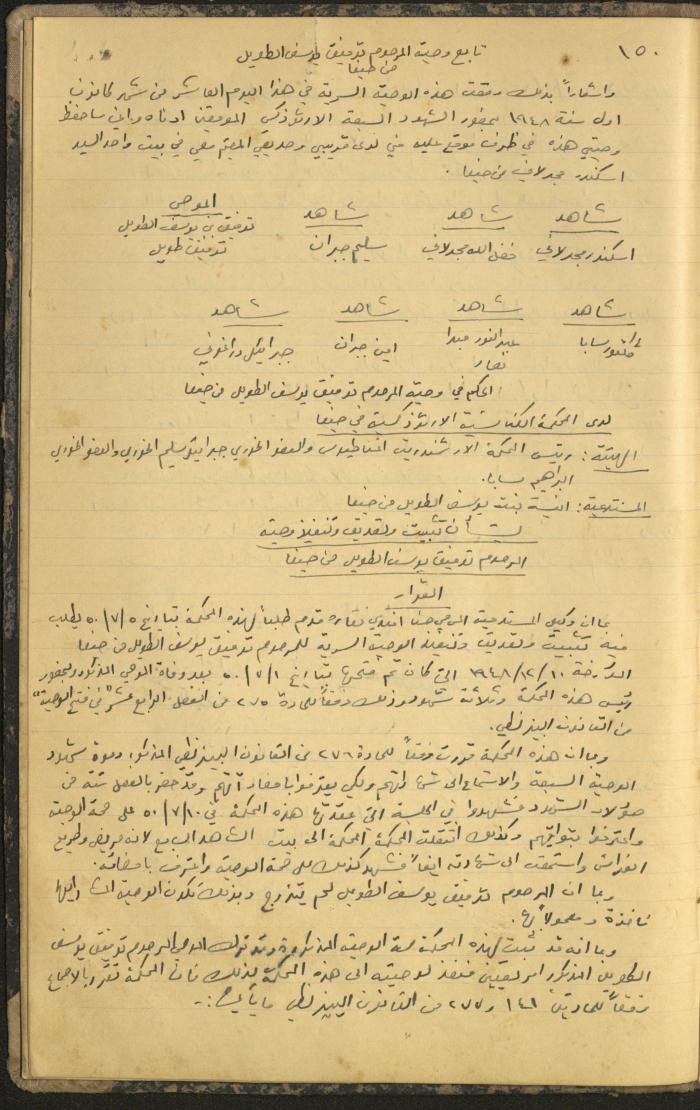 ١٥٠
تابع وصية المرحوم توفيق يوسف الطويل
من حيفا
واشعاراً بذلك وقعت هذه الوصية السرية في هذا اليوم العاشر من شهر كانون
اول سنة ١٩٤٨ بحضور الشهود السبعة الارثوذكس الموقعين ادناه واني ساحفظ
وصيتي هذه في ظرف موقع عليه مني لدى قريبي وصديقي المقيم معي في بيت واحد السيد
اسكندر مجدلاني من حيفا .
شاهد شاهد شاهد الموصي
اسكندر مجدلاني فضل الله مجدلاني سليم جبران توفيق بن يوسف الطويل
توفيق طويل
شاهد شاهد شاهد شاهد
سابا عبد النور امين جبران جبرائيل
نصار
الحكم في وصية المرحوم توفيق يوسف الطويل من حيفا
لدى المحكمة الكنائسية الارثوذكسية في حيفا
الهيئة : رئيس المحكمة الارشمندريت والعضو الخوري جبرائيل سليم الخوري والعضو الخوري
ابراهيم سابا.
المستدعية : انيسة بنت يوسف الطويل من حيفا
بشأن تثبيت وتصديق وتنفيذ وصية
المرحوم توفيق يوسف الطويل من حيفا
القرار
بما ان وكيل المستدعية حنا افندي نقاره قدم طلباً لهذه المحكمة بتاريخ ٥/ ٧/ ٥٠ يطلب
فيه تثبيت وتصديق وتنفيذ الوصية السرية للمرحوم توفيق يوسف الطويل من حيفا
المؤرخة ١٠/ ١٢/ ١٩٤٨ التي كان تم فتحها بتاريخ ١/ ٧/ ٥٠ بعد وفاة الموصي المذكور وبحضور
رئيس هذه المحكمة وثلاثة شهود وذلك وفقاً للمادة ٢٧٥ من الفصل الرابع عشر "في فتح الوصية"
من القانون البيزنطي.
وبما ان هذه المحكمة قررت وفقاً للمادة ٢٧٦ من القانون البيزنطي المذكور دعوة شهود
الوصية السبعة والاستماع الى شهاداتهم ولكي يعترفوا بامضاءاتهم وقد حضر بالفعل ستة من
هؤلاء الشهود وشهدوا في الجلسة التي عقدتها هذه المحكمة في ١٠/ ٧/ ٥٠ على صحة الوصية
واعترفوا بتواقيعهم وكذلك انتقلت المحكمة الى بيت الشاهد السابع لانه مريض وطريح
الفراش واستمعت الى شهادته ايضاً فشهد كذلك على صحة الوصية واعترف بامضائه.
وبما ان المرحوم توفيق يوسف الطويل لم يتزوج وبذلك تكون الوصية المشار اليها
نافذة ومعمولاً بها.
وبما انه قد ثبت لهذه المحكمة صحة الوصية المذكورة وقد ترك الموصي المرحوم توفيق يوسف
الطويل المذكور امر تعيين منفذ لوصيته الى هذه المحكمة لذلك فان المحكمة تقرر بالاجماع
وفقاً للمادتين ١٤١ و ٢٧٧ من القانون البيزنطي ما يأتي :ـ